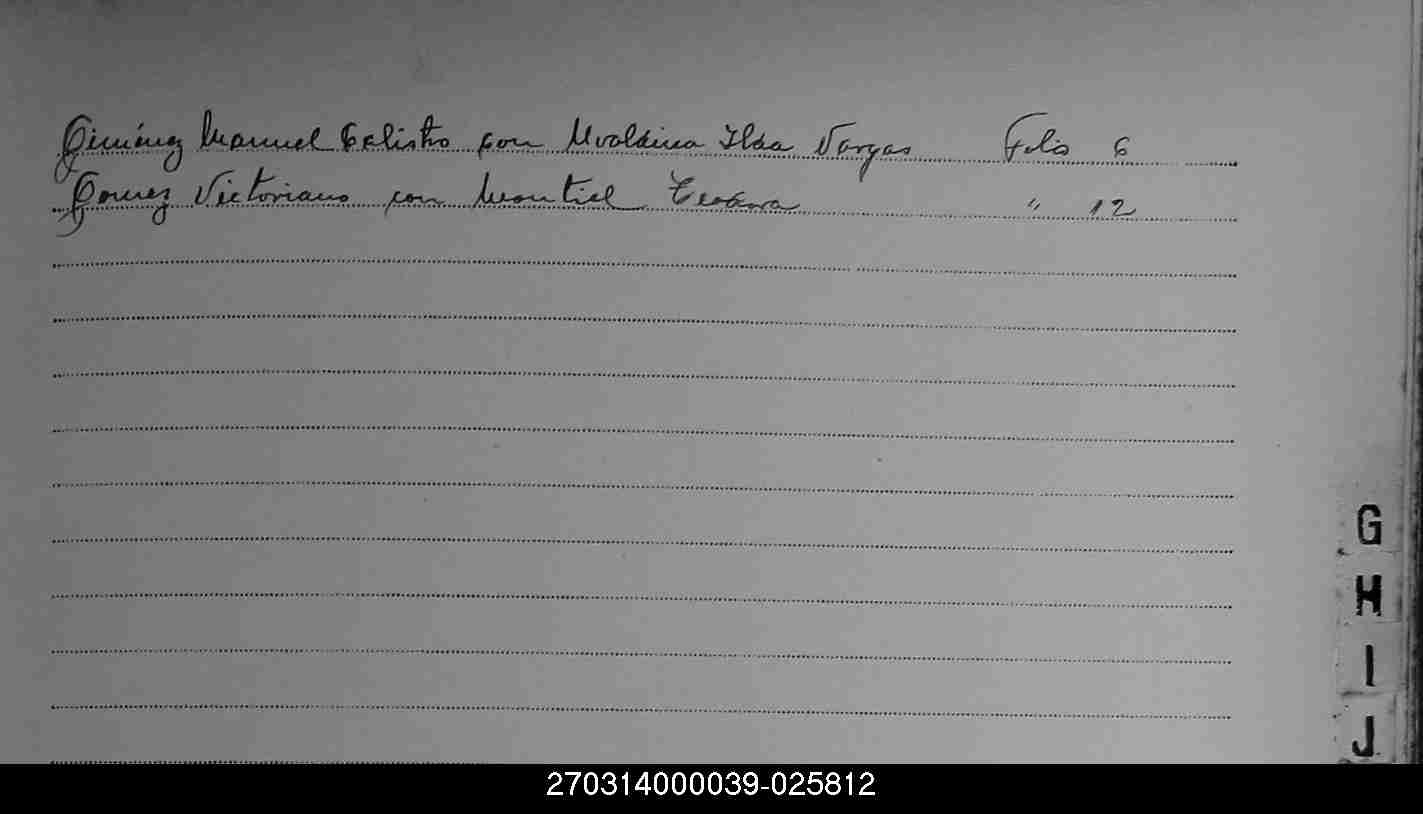 Giménez Manuel Calistro con Uvaldina Ilda Vargas Folio 6
Gomez Victoriano con Montiel " 12
G
H
I
J
270314000039-025812